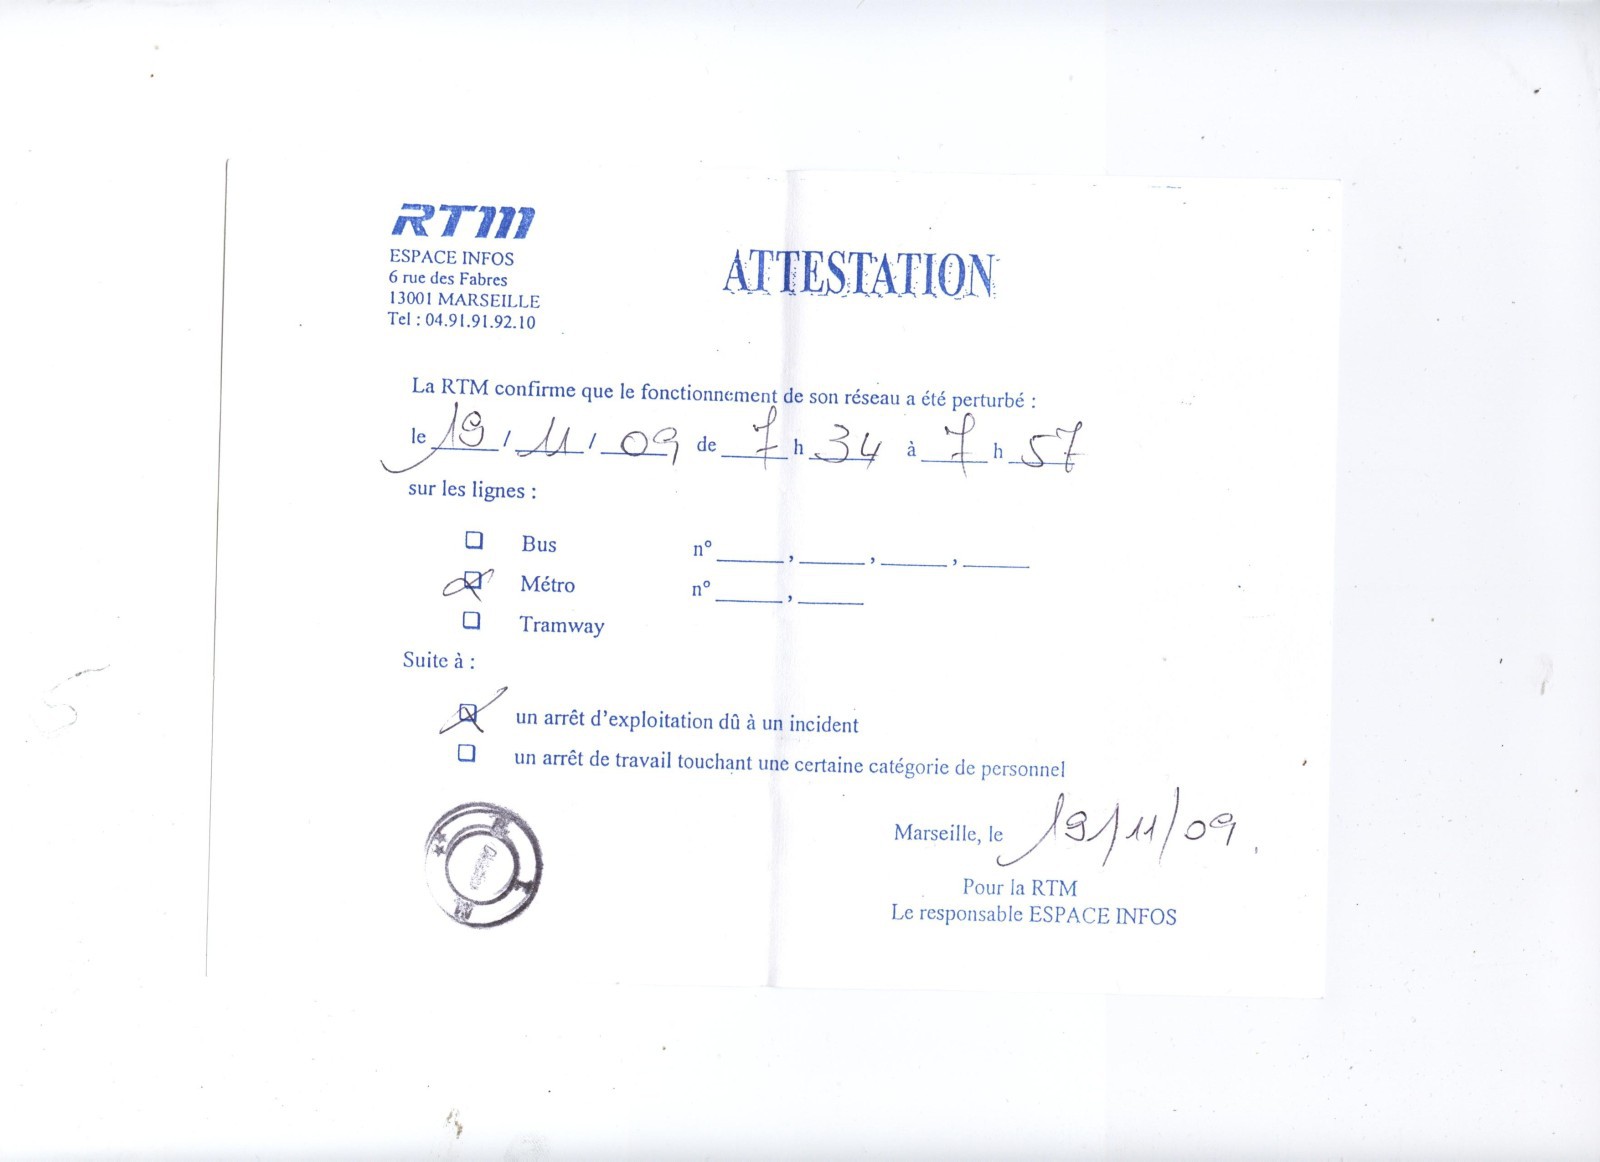 RTM
ESPACE INFOS
6 rue des Fabres
13001 MARSEILLE
Tel : 04.91.91.92.10
ATTESTATION
La RTM confirme que le fonctionnement de son réseau a été perturbé :
le 19 / 11 / 09 de 7 h 34 à 7 h 57
sur les lignes :
Bus n° ____, ____, ____, ____
Métro n° ____, ____
Tramway
Suite à :
un arrêt d'exploitation dû à un incident
un arrêt de travail touchant une certaine catégorie de personnel
Marseille, le 19/11/09.
Pour la RTM
Le responsable ESPACE INFOS